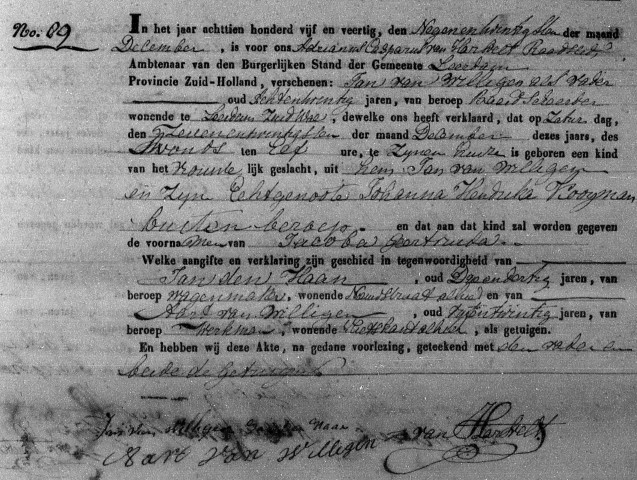 No. 89
In het jaar achttien honderd vijf en veertig, den Negenentwintigsten der maand
December, is voor ons Adrianus Casparus van Hartevelt
Ambtenaar van den Burgerlijken Stand der Gemeente Leerdam
Provincie Zuid-Holland, verschenen: Jan van Willigen als vader
oud Achtentwintig jaren, van beroep
wonende te Leerdam, dewelke ons heeft verklaard, dat op Zaturdag,
den Zevenentwintigsten der maand December dezes jaars, des
Avonds ten Elf ure, te Zynen huize is geboren een kind
van het Vrouwelijk geslacht, uit hem Jan van Willigen
en zyn Echtgenoote Johanna Hendrika Kooyman
buiten beroep. en dat aan dat kind zal worden gegeven
de voornamen van Jacoba
Welke aangifte en verklaring zijn geschied in tegenwoordigheid van
Jan den Haan, oud jaren, van
beroep wagenmaker, wonende en van
Aart van Willigen, oud jaren, van
beroep Werkman, wonende, als getuigen.
En hebben wij deze Akte, na gedane voorlezing, geteekend met den vader en
beide de getuigen
Aart van Willigen van